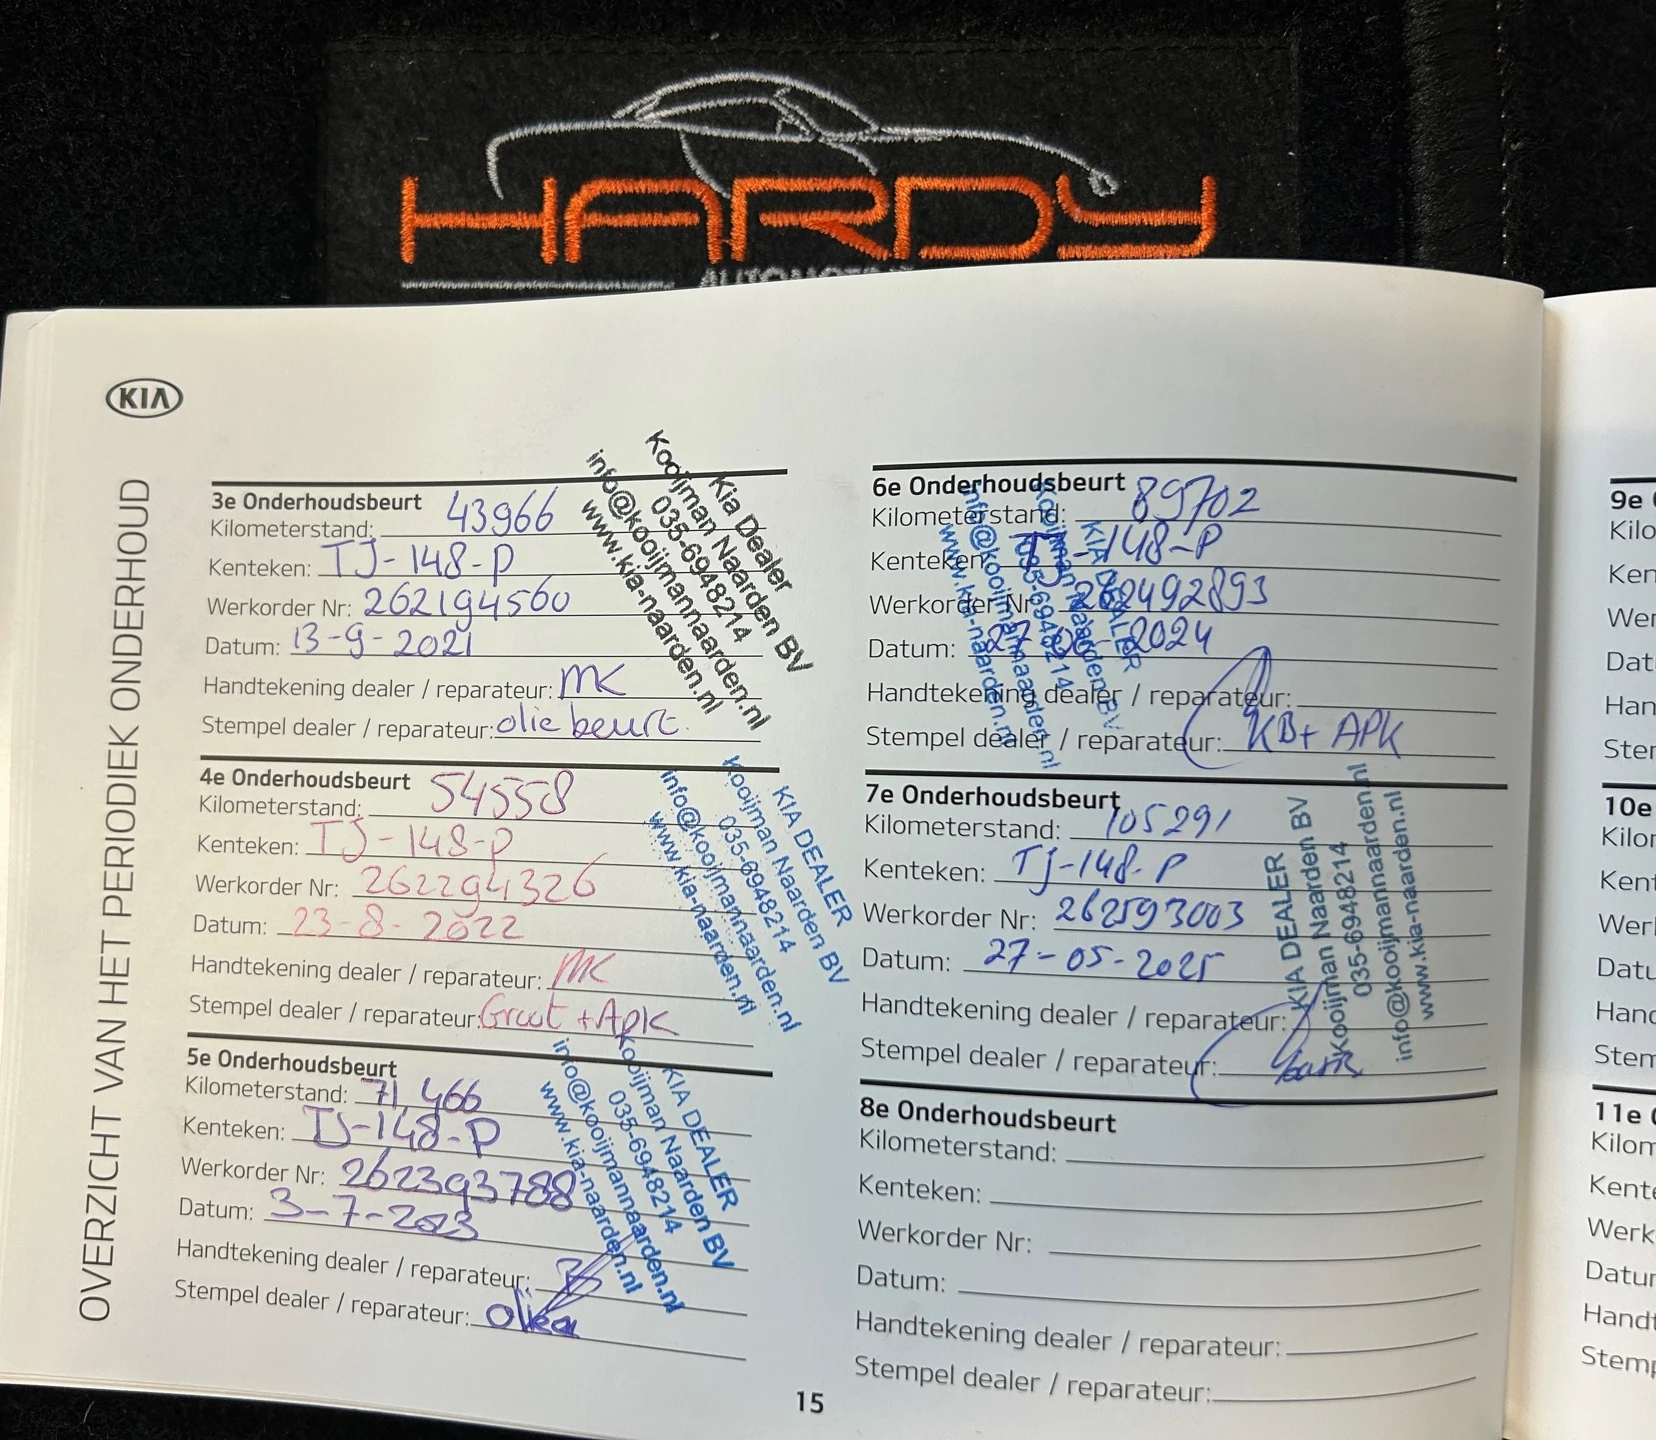 HARDY
KIA
OVERZICHT VAN HET PERIODIEK ONDERHOUD
3e Onderhoudsbeurt
Kilometerstand: 43966
Kenteken: TJ-148-P
Werkorder Nr: 262194560
Datum: 13-9-2021
Handtekening dealer / reparateur: MK
Stempel dealer / reparateur: olie beurt.
Kia Dealer
Kooijman Naarden BV
035-6948214
info@kooijmannaarden.nl
www.kia-naarden.nl
4e Onderhoudsbeurt
Kilometerstand: 54558
Kenteken: TJ-148-P
Werkorder Nr: 262294326
Datum: 23-8-2022
Handtekening dealer / reparateur: MK
Stempel dealer / reparateur: Groot + Apk
KIA DEALER
Kooijman Naarden BV
035-6948214
info@kooijmannaarden.nl
www.kia-naarden.nl
5e Onderhoudsbeurt
Kilometerstand: 71466
Kenteken: TJ-148-P
Werkorder Nr: 262393788
Datum: 3-7-2023
Handtekening dealer / reparateur:
Stempel dealer / reparateur:
KIA DEALER
Kooijman Naarden BV
035-6948214
info@kooijmannaarden.nl
www.kia-naarden.nl
6e Onderhoudsbeurt
Kilometerstand: 89702
Kenteken: TJ-148-P
Werkorder Nr: 262492893
Datum: 2024
Handtekening dealer / reparateur:
Stempel dealer / reparateur: KB+ APK
KIA DEALER
Kooijman Naarden BV
035-6948214
info@kooijmannaarden.nl
www.kia-naarden.nl
7e Onderhoudsbeurt
Kilometerstand: 105291
Kenteken: TJ-148-P
Werkorder Nr: 262593003
Datum: 27-05-2025
Handtekening dealer / reparateur:
Stempel dealer / reparateur:
KIA DEALER
Kooijman Naarden BV
035-6948214
info@kooijmannaarden.nl
www.kia-naarden.nl
8e Onderhoudsbeurt
Kilometerstand:
Kenteken:
Werkorder Nr:
Datum:
Handtekening dealer / reparateur:
Stempel dealer / reparateur:
15
9e
10e
11e